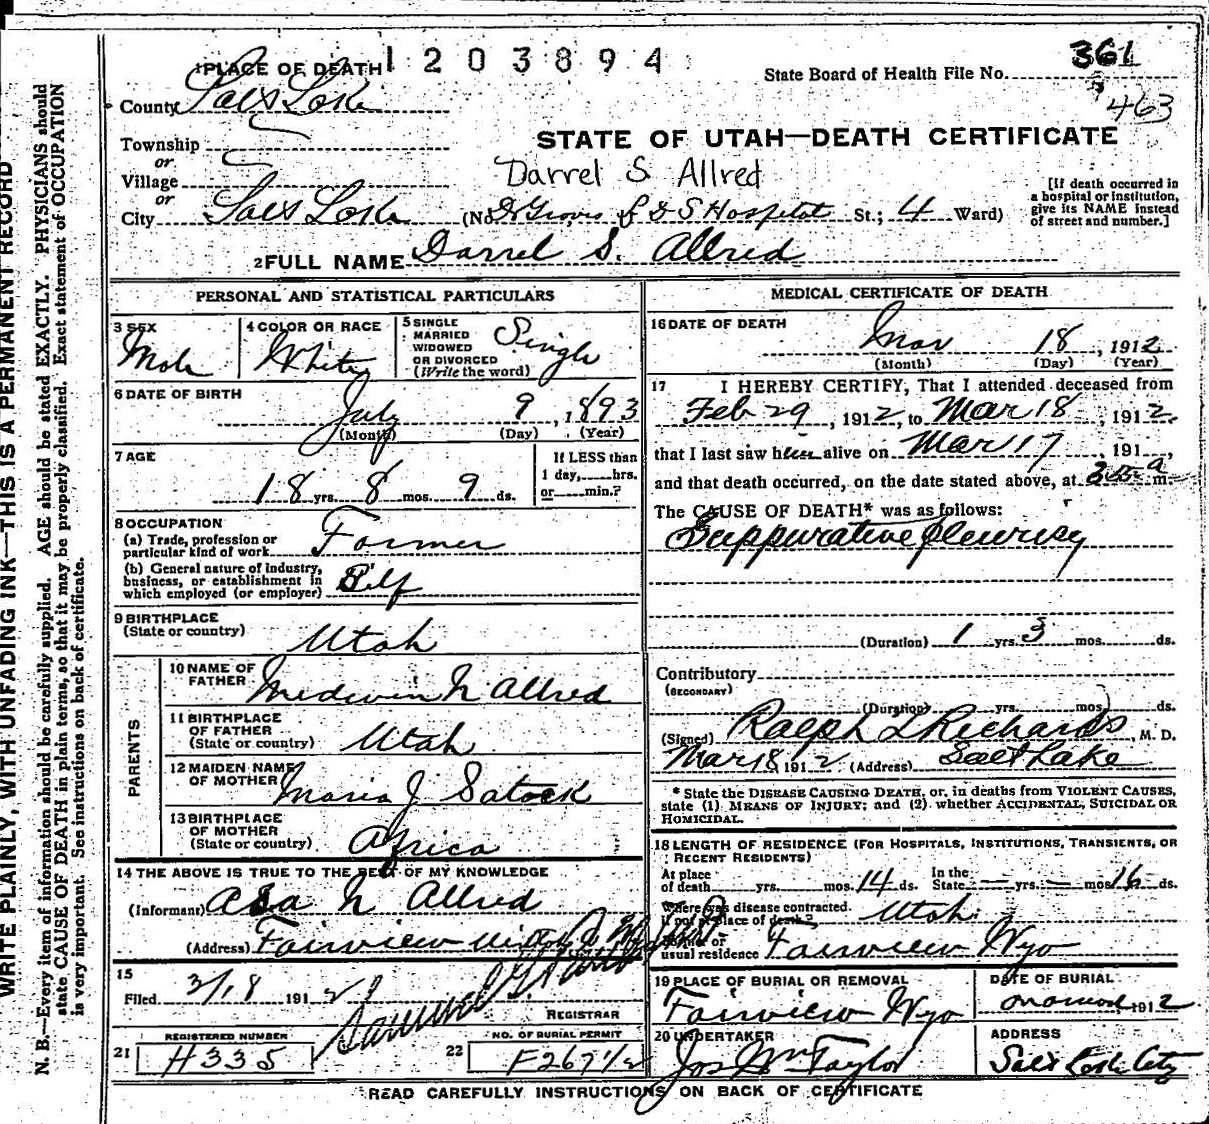 1203894
1 PLACE OF DEATH
State Board of Health File No. 361
463
County Salt Lake
STATE OF UTAH—DEATH CERTIFICATE
Township
or
Village
Darrel S Allred
or
City Salt Lake (No. Dr Groves L D S Hospital St.; 4 Ward)
[If death occurred in a hospital or institution, give its NAME instead of street and number.]
2 FULL NAME Darrel S. Allred
PERSONAL AND STATISTICAL PARTICULARS
3 SEX
Male
4 COLOR OR RACE
White
5 SINGLE
MARRIED
WIDOWED
OR DIVORCED
(Write the word)
Single
6 DATE OF BIRTH
July 9, 1893
(Month) (Day) (Year)
7 AGE
18 yrs. 8 mos. 9 ds.
If LESS than
1 day, hrs.
or min.?
8 OCCUPATION
(a) Trade, profession or
particular kind of work Farmer
(b) General nature of industry,
business, or establishment in
which employed (or employer) Self
9 BIRTHPLACE
(State or country) Utah
PARENTS
10 NAME OF
FATHER Medwin N Allred
11 BIRTHPLACE
OF FATHER
(State or country) Utah
12 MAIDEN NAME
OF MOTHER Maria J Satock
13 BIRTHPLACE
OF MOTHER
(State or country) Africa
14 THE ABOVE IS TRUE TO THE BEST OF MY KNOWLEDGE
(Informant) Asa N Allred
(Address) Fairview
15
Filed 3/18 1912
REGISTRAR
REGISTERED NUMBER
21 H335
NO. OF BURIAL PERMIT
22 F267 1/2
MEDICAL CERTIFICATE OF DEATH
16 DATE OF DEATH
Mar 18, 1912
(Month) (Day) (Year)
17 I HEREBY CERTIFY, That I attended deceased from
Feb 29, 1912, to Mar 18, 1912,
that I last saw him alive on Mar 17, 191
and that death occurred, on the date stated above, at m.
The CAUSE OF DEATH* was as follows:
Suppurative pleurisy
(Duration) 1 yrs. 3 mos. ds.
Contributory
(SECONDARY)
(Duration) yrs. mos. ds.
(Signed) Ralph T Richards, M. D.
Mar 18, 1912 (Address) Salt Lake
* State the DISEASE CAUSING DEATH, or, in deaths from VIOLENT CAUSES,
state (1) MEANS OF INJURY; and (2) whether ACCIDENTAL, SUICIDAL OR
HOMICIDAL.
18 LENGTH OF RESIDENCE (FOR HOSPITALS, INSTITUTIONS, TRANSIENTS, OR
RECENT RESIDENTS)
At place
of death yrs. mos. 14 ds.
In the
State — yrs. — mos. 16 ds.
Where was disease contracted
if not at place of death? Utah
Former or
usual residence Fairview Wyo
19 PLACE OF BURIAL OR REMOVAL
Fairview Wyo
DATE OF BURIAL
1912
20 UNDERTAKER
Jos Wm Taylor
ADDRESS
Salt Lake City
READ CAREFULLY INSTRUCTIONS ON BACK OF CERTIFICATE
WRITE PLAINLY, WITH UNFADING INK—THIS IS A PERMANENT RECORD
N. B.—Every item of information should be carefully supplied. AGE should be stated EXACTLY. PHYSICIANS should
state CAUSE OF DEATH in plain terms, so that it may be properly classified. Exact statement of OCCUPATION
is very important. See instructions on back of certificate.